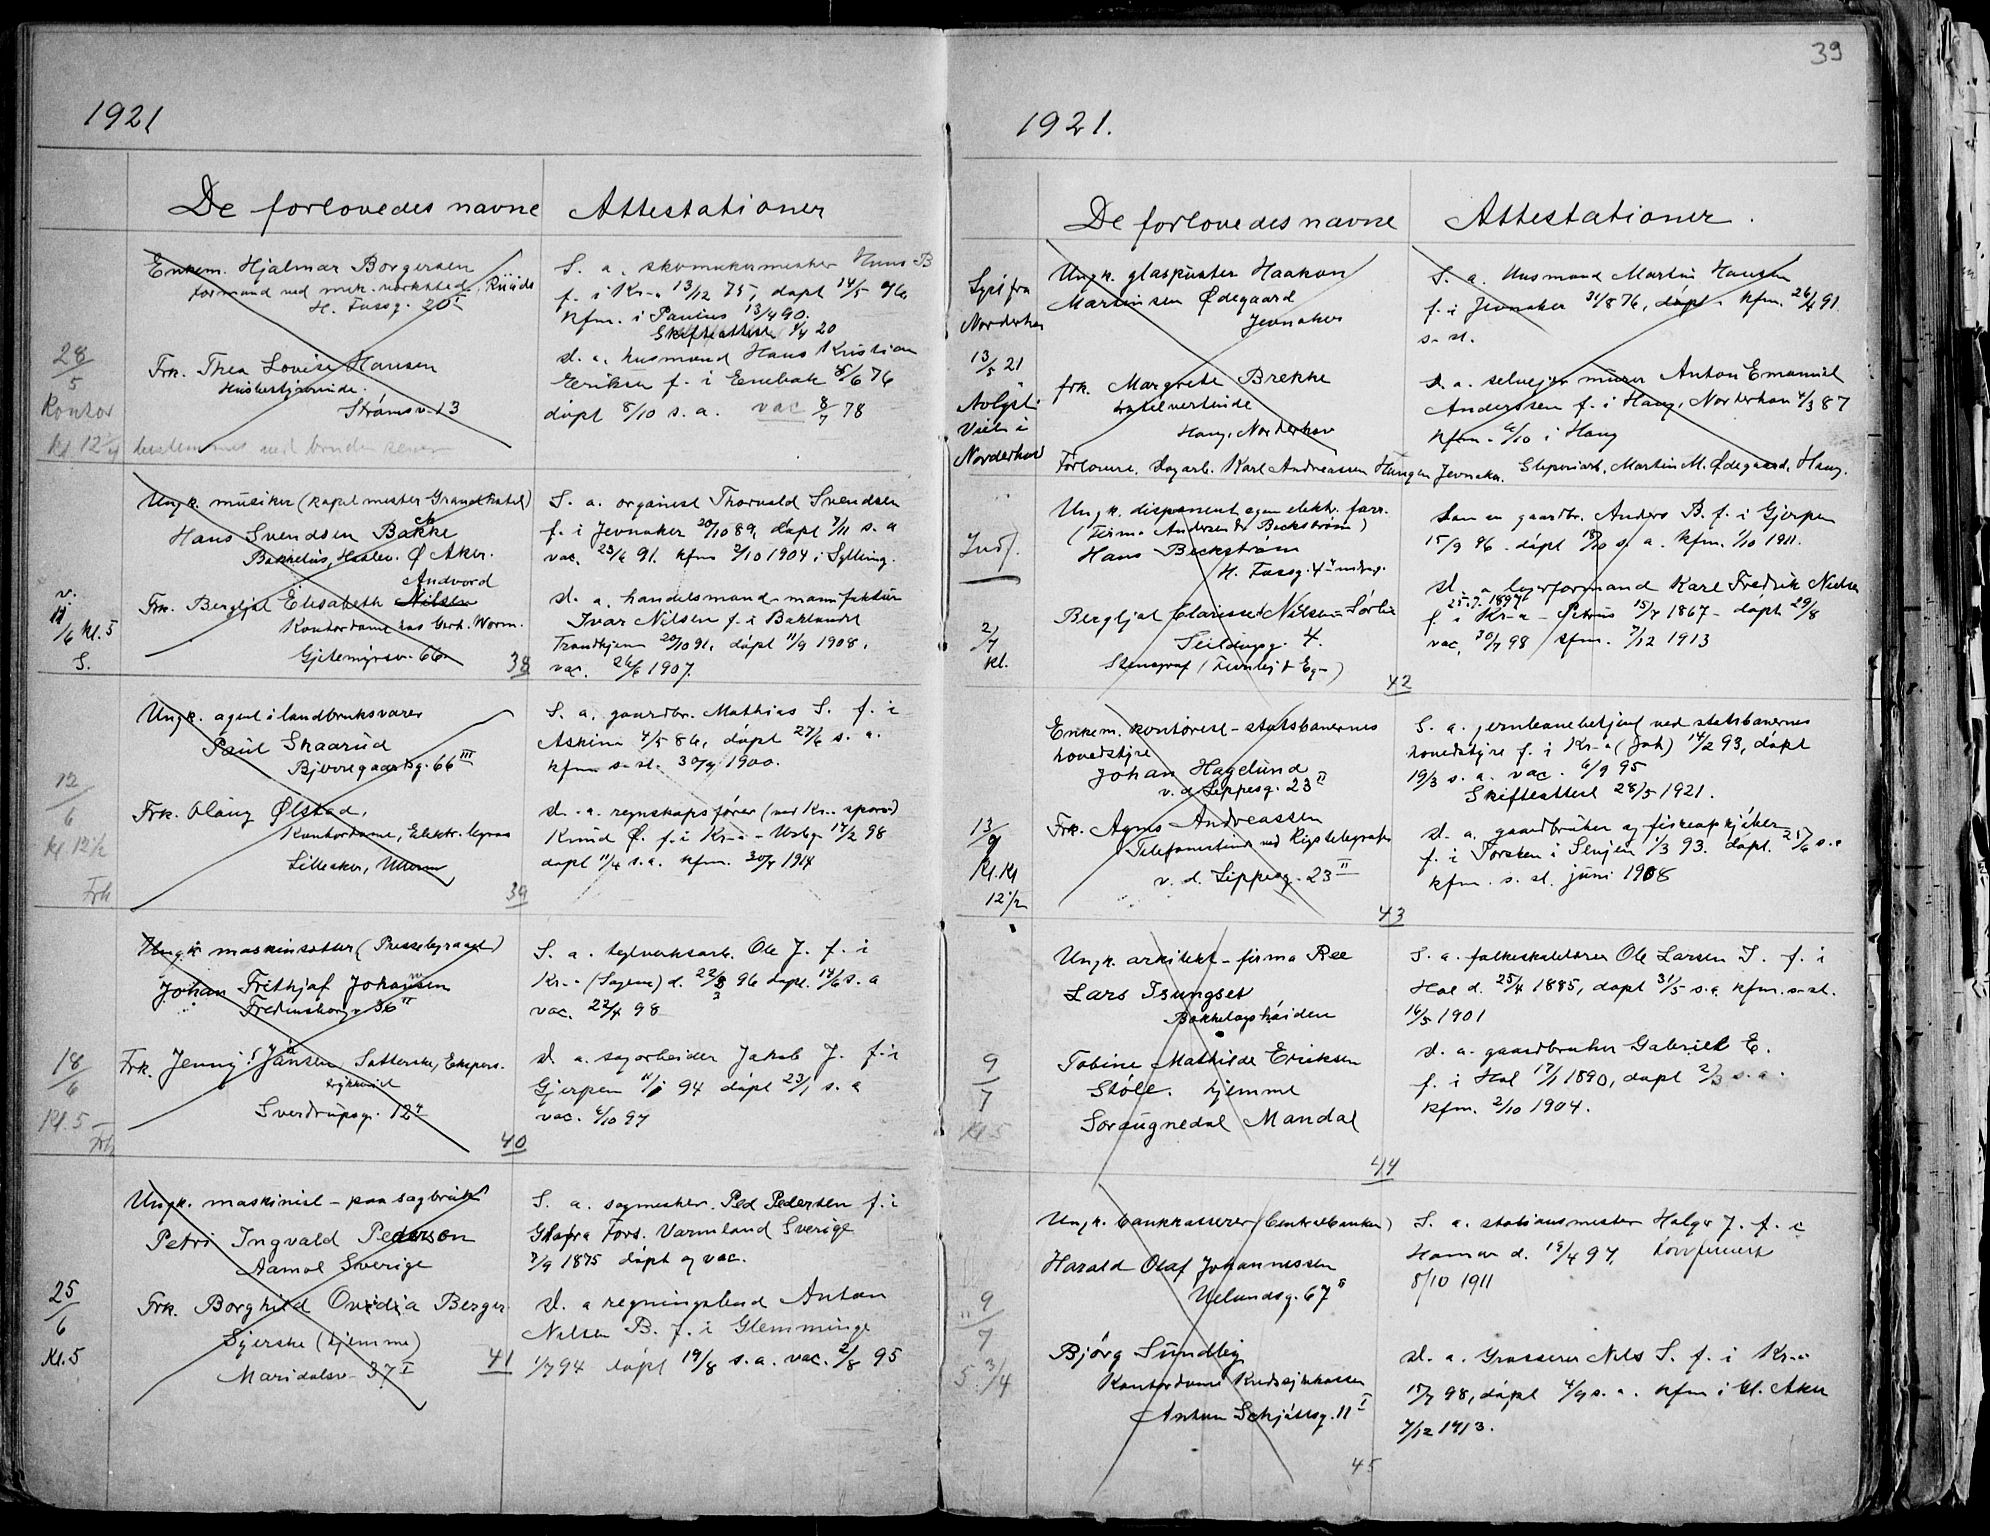 1921
De forlovedes navne Attestationer
Enkem. Hjalmar Borgersen
formand ved mek. verksted
H. Fossg. 20 I
28/5
Kontor
Kl. 12
Frk. Thea Lovise Hansen
Strømsv. 13
S. a. skomakermester Hans B
f. i Kr-a 13/12 75, døpt 14/5 76
kfm. i Paulus 13/4 90.
Skifteattest 20
d. a. husmand Hans Kristian
Eriksen f. i Enebak 76
døpt 8/10 s. a. vac 8/7 78
Ungk. musiker (kapelmester Grand Hotel)
Hans Svendsen Bakke
Ø Aker.
Andvord
Frk. Bergljot Elisabeth Nilsen
Kontordame hos Gerh. Worm.
Gjetemyrsv. 66
38
/6 kl. 5
S.
S. a. organist Thorvald Svendsen
f. i Jevnaker 20/10 89, døpt 7/11 s. a
vac. 23/6 91. kfm 2/10 1904 i Sylling.
d. a. handelsmand manufaktur
Ivar Nilsen f. i Baklandet
Trondhjem 20/10 91, døpt 11/9 1908.
vac. 26/6 1907.
Ungk. agent i landbruksvarer
Paul Skaarud
Bjerregaardsg. 66 III
12/6
kl 12 1/2
Frk. Ølstad.
Kontordame, Elektr. byraa
Lilleaker,
39
S. a. gaardbr. Mathias S. f. i
Askim 4/5 86, døpt 27/6 s. a.
kfm s. st. 30/9 1900.
d. a. regnskapsfører (ved Kr. sporv.)
Knud Ø. f. i Kr-a 17/2 98
døpt 11/4 s. a. kfm. 1914
Ungk. maskinsætter (Pressebyraaet)
Johan Frithjof Johansen
Fredensborgv 36 II
18/6
Kl. 5
Frk. Jenny Jansen
Sverdrupsg. 12
40
S. a. teglverksarb. Ole J. f. i
Kr-a (Sagene) d. 22/3 96 døpt. 14/6 s. a
vac. 22/4 98
d. a. sagarbeider Jakob J. f. i
Gjerpen 11/1 94 døpt 23/1 s. a
vac. 6/10 97
Ungk. maskinist - paa sagbruk
Petri Ingvald Pedersen
Aamot Sverige
25/6
Kl. 5
Frk. Borghild Ovidia Berger
Syerske (hjemme)
Maridalsv. 37 I
41
S. a. sagmester Ped Pedersen f. i
Glafra Fors. Varmland Sverige
7/9 1875 døpt og vac.
d. a regningsbud Anton
Nilsen B. f. i Glemminge
1/7 94 døpt 19/8 s. a. vac. 2/8 95
39
1921.
De forlovedes navne Attestationer.
Lyst fra
Norderhov
13/5 21
Norderhov
Ungk. glaspuster Haakon
Martinsen Ødegaard
Jevnaker
frk. Margrete Brekke
Haug, Norderhov
S. a. husmand Martin Hansen
f. i Jevnaker 31/8 76, døpt. kfm. 26/4 91.
s. st.
d. a. selveier murer Anton Emanuel
Anderssen f. i Haug, Norderhov 4/3 87
kfm. 6/10 i Haug
Forlovere, dagarb. Karl Andreassen Haugen Jevnaker. Sliperiarb. Martin M. Ødegaard, Haug.
Ungk. disponent egen elektr. forr.
(Firma Andersen & Beckstrøm)
Hans Beckstrøm
H. Fossg. 4
2/7
kl.
Bergljot Clarisse Nilsen = Sørlie
Seilduksg. 4.
42
Søn av gaardbr. Anders B. f. i Gjerpen
15/9 96. døpt 18/10 s. a. kfm. 1/10 1911.
d. a. lagerformand Karl Fredrik Nielsen
25.7.1897
f. i Kr-a - Petrus 15/7 1867 - døpt 29/8
vac. 30/7 98 kfm. 7/12 1913
Enkem. kontorist - statsbanernes
hovedstyre
Johan Hagelund
v. d Lippesg. 23 II
13/9
12 1/2
Frk. Agnes Andreassen
Telefonistinde ved Rikstelegrafen
v. d. Lippesg. 23 II
43
S. a. jernbanebetjent ved statsbanernes
hovedstyre f. i Kr-a (Joh) 14/2 93, døpt
19/3 s. a. vac. 6/9 95
Skifteattest 28/5 1921.
d. a. gaardbruker og fiskeopkjøber
f. i Torsken i Senjen 1/3 93. døpt. s. a
kfm. s. st. juni 1908
Ungk. arkitekt - firma Ree
Lars Tsungset
Bakkelagshøiden
9/7
Kl 5
Tobine Mathilde Eriksen
Støle. hjemme
Søraugnedal Mandal
44
S. a. folkeskolelærer Ole Larsen T. f. i
Hol d. 25/4 1885, døpt 31/5 s. a. kfm. s. st.
16/5 1901
d. a. gaardbruker Gabriel E.
f. i Hol 17/1 1890, døpt 2/3 s. a.
kfm. 2/10 1904.
Ungk. bankkasserer (Centralbanken)
Harald Olaf Johannessen
Uelandsg. 67
9/7
5 3/4
Bjørg Sundby
Kontordame
Anton Schjøttsg. 11 I
45
S. a. stationsmester Holger J. f. i
Hamar d. 19/4 97, konfirmert
8/10 1911
d. a. Grosserer Nils S. f. i Kr-a
15/7 98, døpt 4/9 s. a. kfm i V. Aker
7/12 1913.